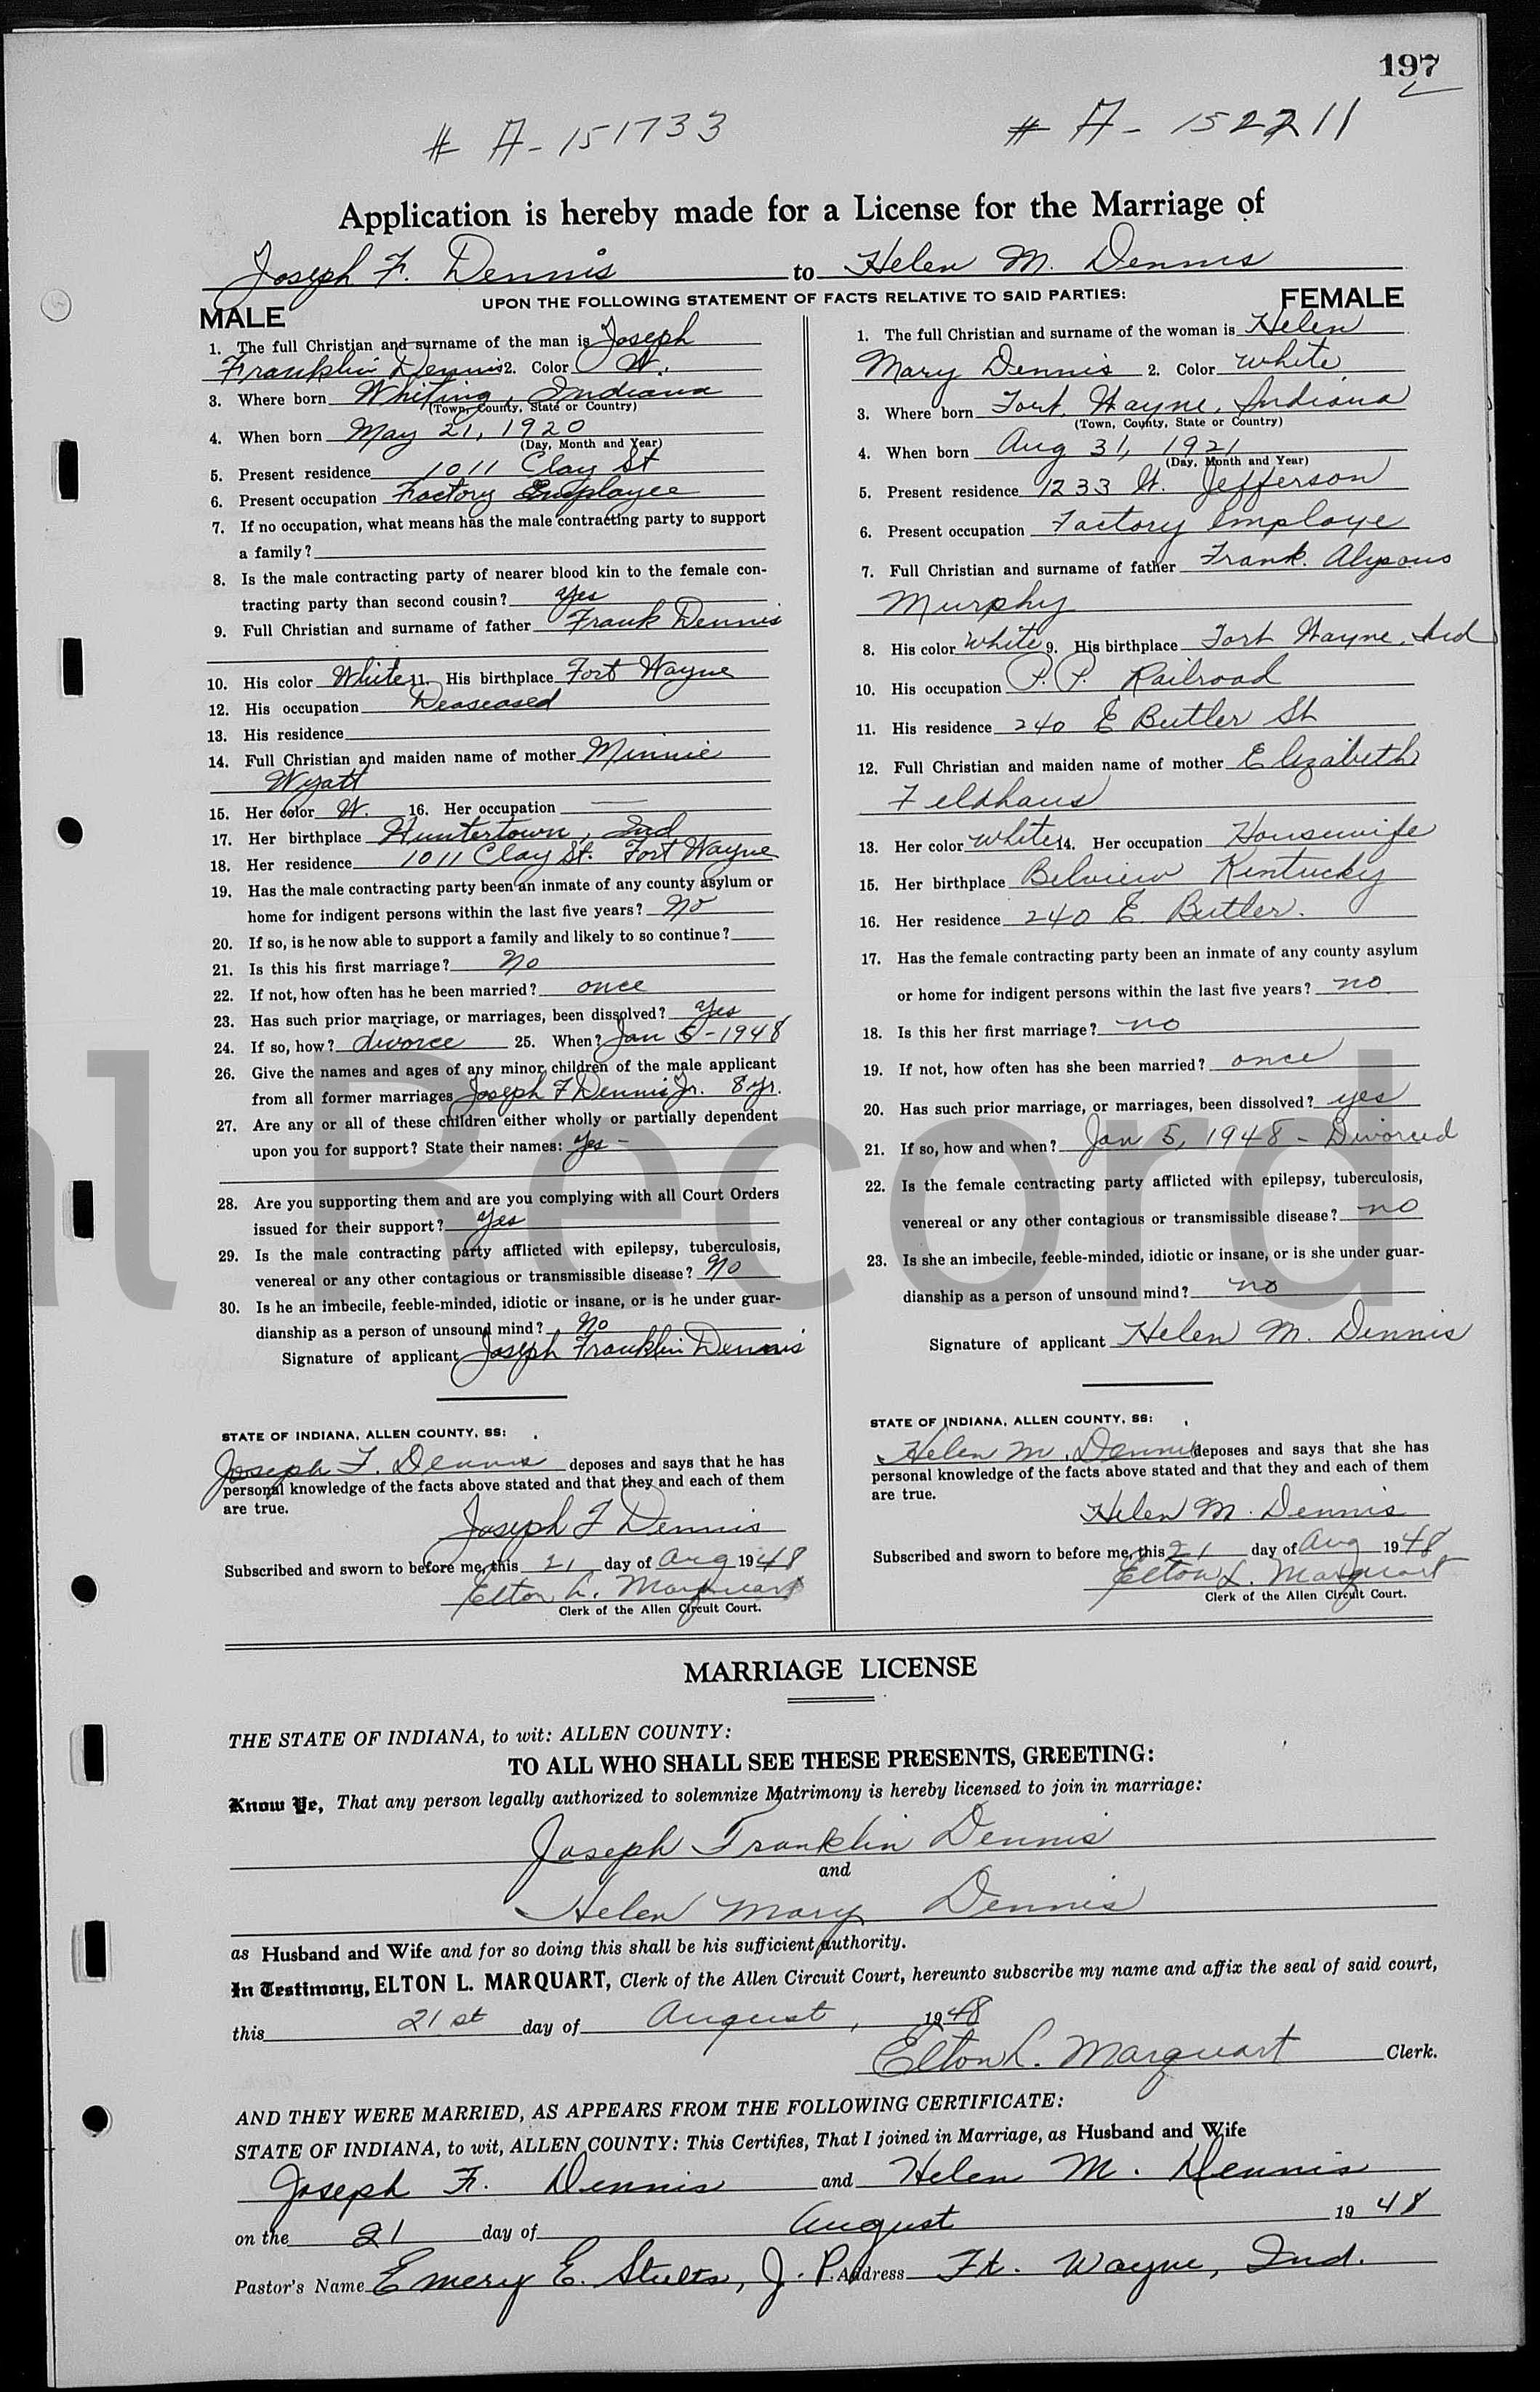 197
# A-151733 # A-152211
Application is hereby made for a License for the Marriage of
Joseph F. Dennis to Helen M. Dennis
UPON THE FOLLOWING STATEMENT OF FACTS RELATIVE TO SAID PARTIES:
MALE
1. The full Christian and surname of the man is Joseph
Franklin Dennis 2. Color W.
3. Where born Whiting, Indiana
(Town, County, State or Country)
4. When born May 21, 1920
(Day, Month and Year)
5. Present residence 1011 Clay St
6. Present occupation Factory Employee
7. If no occupation, what means has the male contracting party to support
a family?
8. Is the male contracting party of nearer blood kin to the female con-
tracting party than second cousin? Yes
9. Full Christian and surname of father Frank Dennis
10. His color White 11. His birthplace Fort Wayne
12. His occupation Deaseased
13. His residence
14. Full Christian and maiden name of mother Minnie
Wyatt
15. Her color W. 16. Her occupation —
17. Her birthplace Huntertown, Ind
18. Her residence 1011 Clay St. Fort Wayne
19. Has the male contracting party been an inmate of any county asylum or
home for indigent persons within the last five years? No
20. If so, is he now able to support a family and likely to so continue?
21. Is this his first marriage? No
22. If not, how often has he been married? once
23. Has such prior marriage, or marriages, been dissolved? Yes
24. If so, how? divorce 25. When? Jan 5-1948
26. Give the names and ages of any minor children of the male applicant
from all former marriages Joseph F Dennis Jr. 8 yr.
27. Are any or all of these children either wholly or partially dependent
upon you for support? State their names: Yes -
28. Are you supporting them and are you complying with all Court Orders
issued for their support? Yes
29. Is the male contracting party afflicted with epilepsy, tuberculosis,
venereal or any other contagious or transmissible disease? No
30. Is he an imbecile, feeble-minded, idiotic or insane, or is he under guar-
dianship as a person of unsound mind? No
Signature of applicant Joseph Franklin Dennis
STATE OF INDIANA, ALLEN COUNTY, SS:
Joseph F. Dennis deposes and says that he has
personal knowledge of the facts above stated and that they and each of them
are true.
Joseph F Dennis
Subscribed and sworn to before me, this 21 day of Aug 1948
Elton L. Marquart
Clerk of the Allen Circuit Court.
FEMALE
1. The full Christian and surname of the woman is Helen
Mary Dennis 2. Color White
3. Where born Fort Wayne, Indiana
(Town, County, State or Country)
4. When born Aug 31, 1921
(Day, Month and Year)
5. Present residence 1233 W. Jefferson
6. Present occupation Factory Employe
7. Full Christian and surname of father Frank. Alysous
Murphy
8. His color White 9. His birthplace Fort Wayne, Ind
10. His occupation P. P. Railroad
11. His residence 240 E Butler St
12. Full Christian and maiden name of mother Elizabeth
Feldhaus
13. Her color White 14. Her occupation Housewife
15. Her birthplace Belview Kentucky
16. Her residence 240 E. Butler.
17. Has the female contracting party been an inmate of any county asylum
or home for indigent persons within the last five years? no
18. Is this her first marriage? no
19. If not, how often has she been married? once
20. Has such prior marriage, or marriages, been dissolved? yes
21. If so, how and when? Jan 5, 1948 - Divorced
22. Is the female contracting party afflicted with epilepsy, tuberculosis,
venereal or any other contagious or transmissible disease? no
23. Is she an imbecile, feeble-minded, idiotic or insane, or is she under guar-
dianship as a person of unsound mind? no
Signature of applicant Helen M. Dennis
STATE OF INDIANA, ALLEN COUNTY, SS:
Helen M. Dennis deposes and says that she has
personal knowledge of the facts above stated and that they and each of them
are true.
Helen M. Dennis
Subscribed and sworn to before me, this 21 day of Aug 1948
Elton L. Marquart
Clerk of the Allen Circuit Court.
l Record
MARRIAGE LICENSE
THE STATE OF INDIANA, to wit: ALLEN COUNTY:
TO ALL WHO SHALL SEE THESE PRESENTS, GREETING:
Know Ye, That any person legally authorized to solemnize Matrimony is hereby licensed to join in marriage:
Joseph Franklin Dennis
and
Helen Mary Dennis
as Husband and Wife and for so doing this shall be his sufficient authority.
In Testimony, ELTON L. MARQUART, Clerk of the Allen Circuit Court, hereunto subscribe my name and affix the seal of said court,
this 21st day of August, 1948
Elton L. Marquart Clerk.
AND THEY WERE MARRIED, AS APPEARS FROM THE FOLLOWING CERTIFICATE:
STATE OF INDIANA, to wit, ALLEN COUNTY: This Certifies, That I joined in Marriage, as Husband and Wife
Joseph F. Dennis and Helen M. Dennis
on the 21 day of August 1948
Pastor's Name Emery E. Stults, J. P. Address Ft. Wayne, Ind.